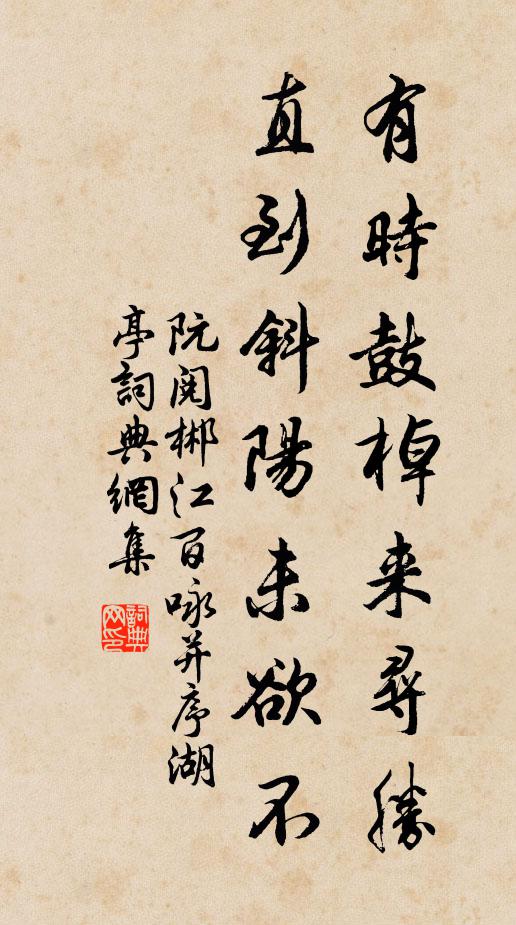 有時鼓棹来尋勝
直到斜陽未欲不
阮閱郴江百咏并序湖
亭詞典網集
詞典网印